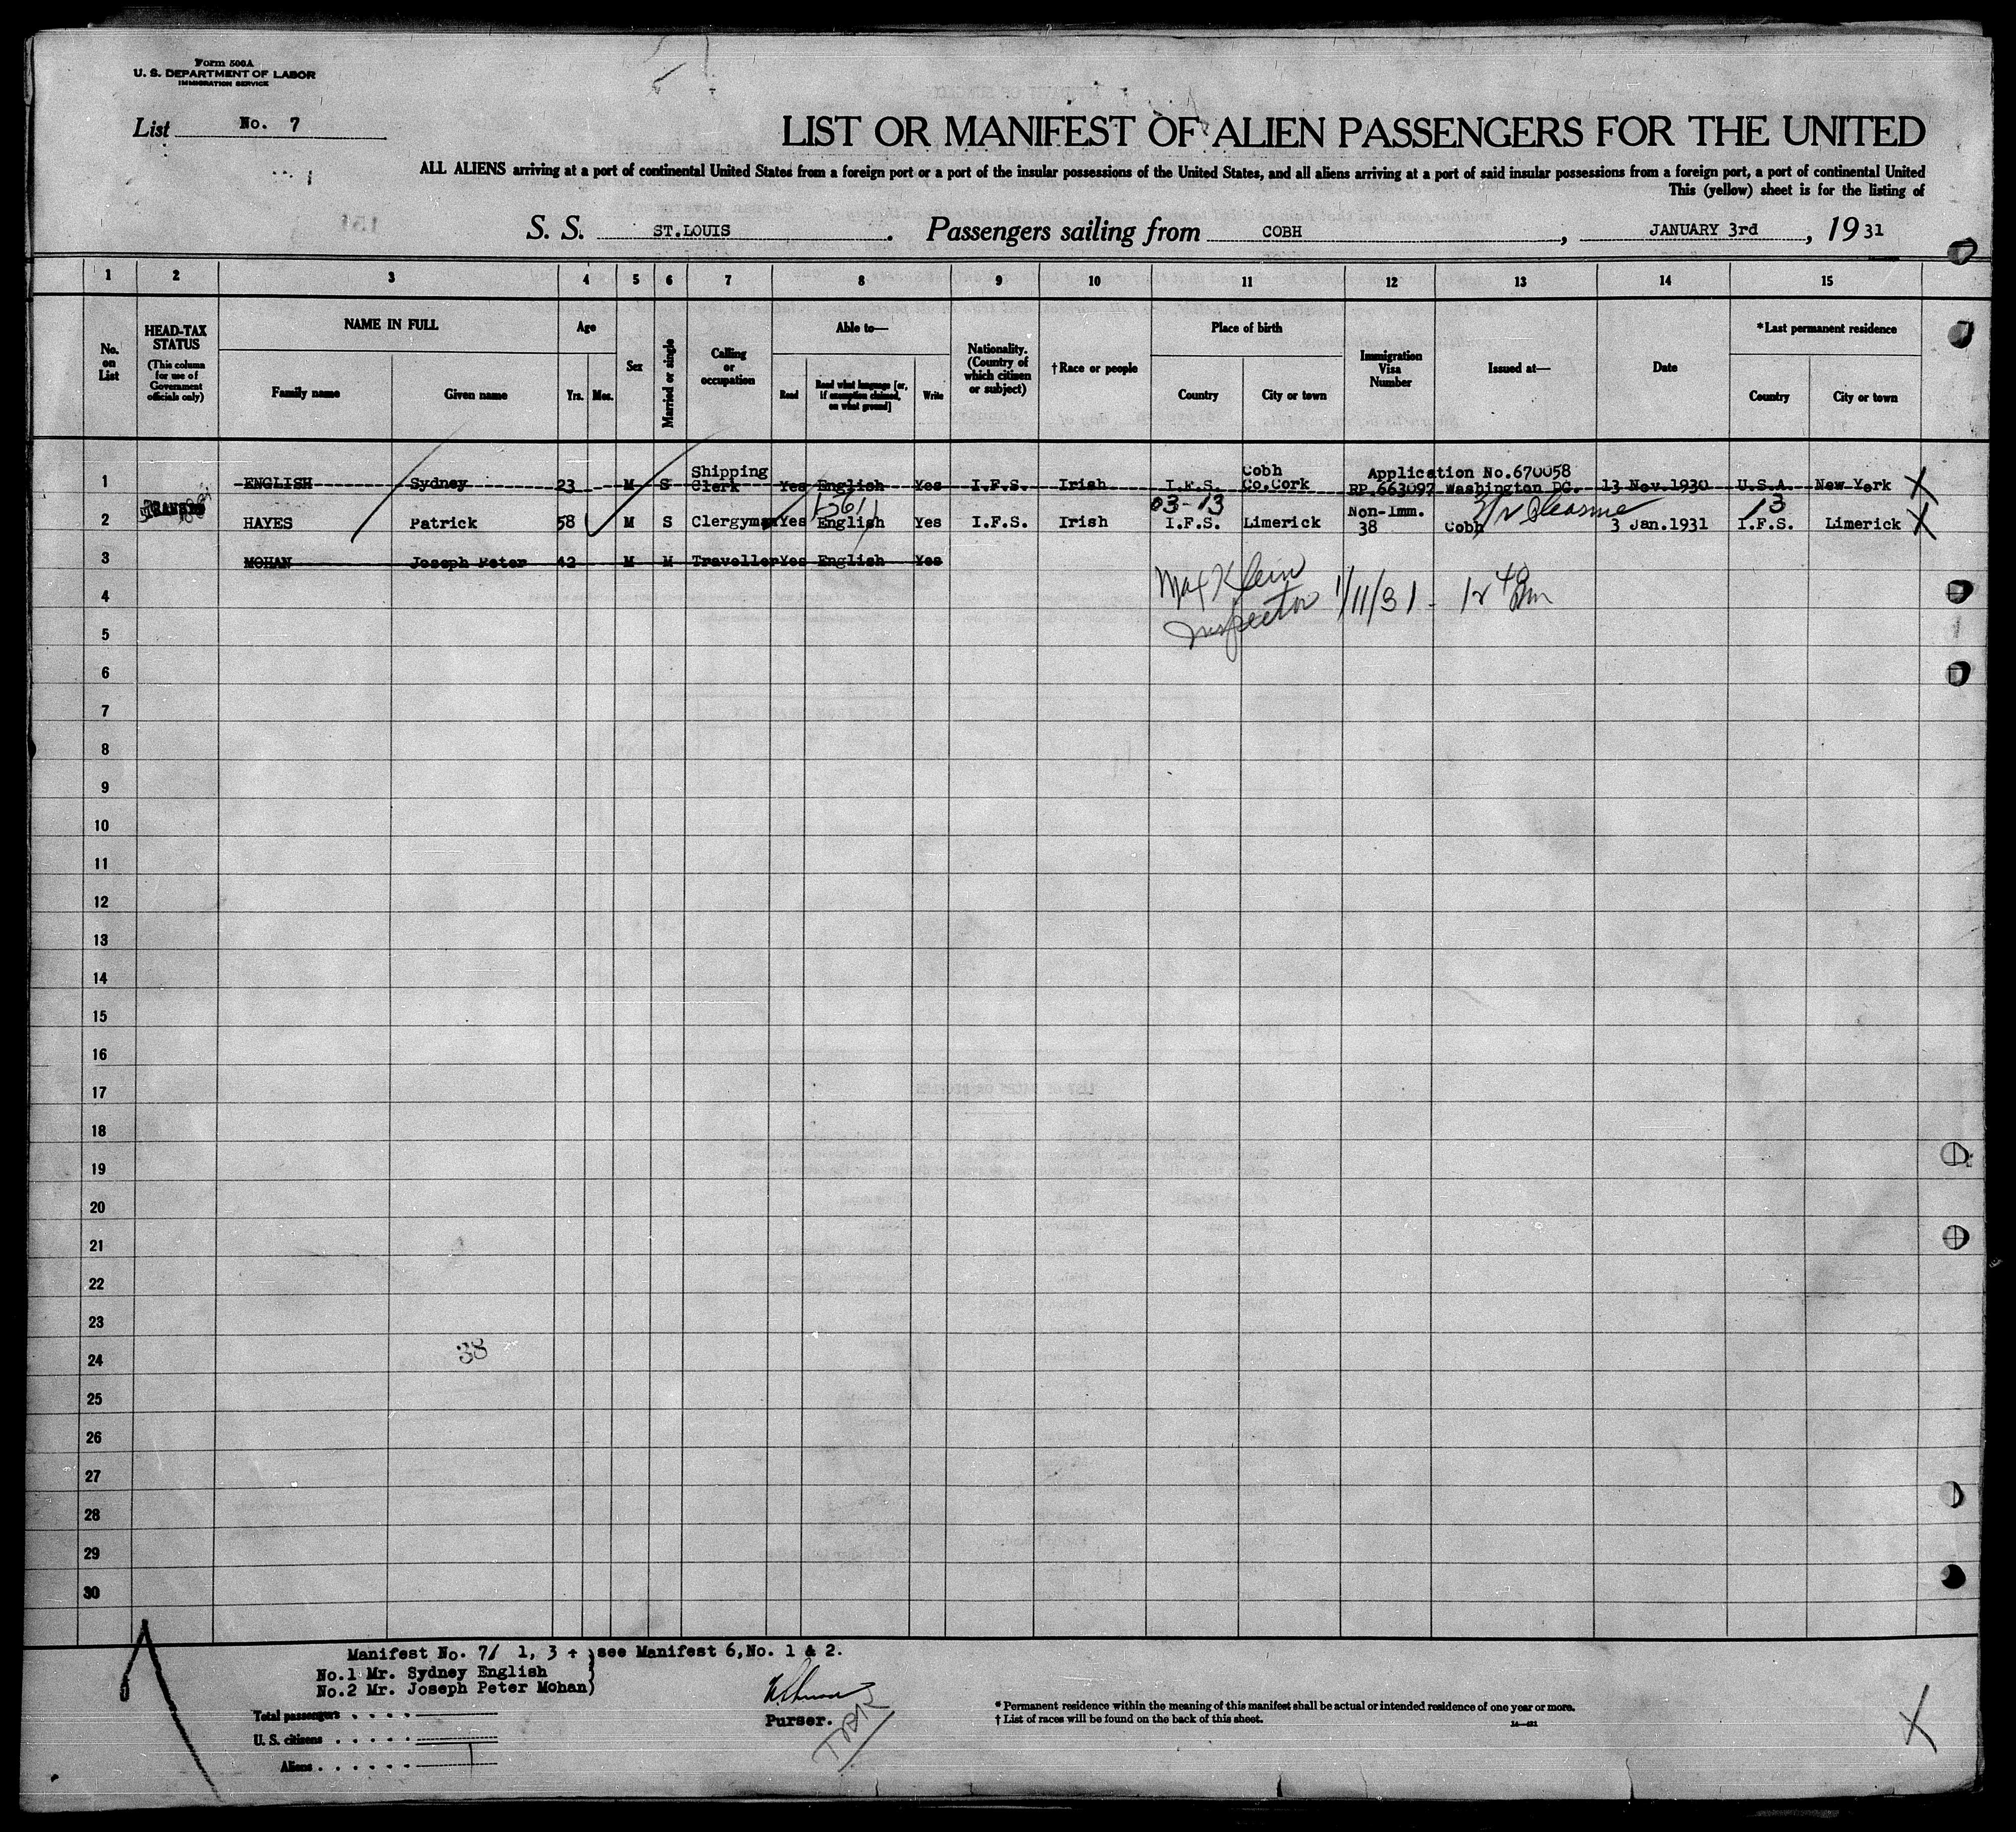 Form 500A
U. S. DEPARTMENT OF LABOR
IMMIGRATION SERVICE
List No. 7
LIST OR MANIFEST OF ALIEN PASSENGERS FOR THE UNITED
ALL ALIENS arriving at a port of continental United States from a foreign port or a port of the insular possessions of the United States, and all aliens arriving at a port of said insular possessions from a foreign port, a port of continental United
This (yellow) sheet is for the listing of
S. S. ST.LOUIS. Passengers sailing from COBH, JANUARY 3rd, 1931
1 2 3 4 5 6 7 8 9 10 11 12 13 14 15
No. on List
HEAD-TAX STATUS
(This column for use of Government officials only)
NAME IN FULL
Family name
Given name
Age
Yrs. Mos.
Sex
Married or single
Calling or occupation
Able to—
Read
Read what language [or, if exemption claimed, on what ground]
Write
Nationality. (Country of which citizen or subject)
†Race or people
Place of birth
Country
City or town
Immigration Visa Number
Issued at—
Date
*Last permanent residence
Country
City or town
1 ENGLISH Sydney 23 M S Shipping Clerk Yes English Yes I.F.S. Irish I.F.S. Cobh Co.Cork Application No.670058 RP.663097 Washington DC. 13 Nov.1930 U.S.A. New York X
1-561 03-13 13
2 HAYES Patrick 58 M S Clergyman Yes English Yes I.F.S. Irish I.F.S. Limerick Non-Imm. 38 Cobh 3 Jan.1931 I.F.S. Limerick X
3 MOHAN Joseph Peter 42 M M Traveller Yes English Yes
Max Klein 1/11/31 - 12 40 Pm
Inspector
4
5
6
7
8
9
10
11
12
13
14
15
16
17
18
19
20
21
22
23
24
38
25
26
27
28
29
30
Manifest No. 7/ 1, 3 + see Manifest 6,No. 1 & 2.
No.1 Mr. Sydney English
No.2 Mr. Joseph Peter Mohan
Purser.
Total passengers . . . .
U. S. citizens . . . . .
Aliens . . . . . . 1
* Permanent residence within the meaning of this manifest shall be actual or intended residence of one year or more.
† List of races will be found on the back of this sheet.
X